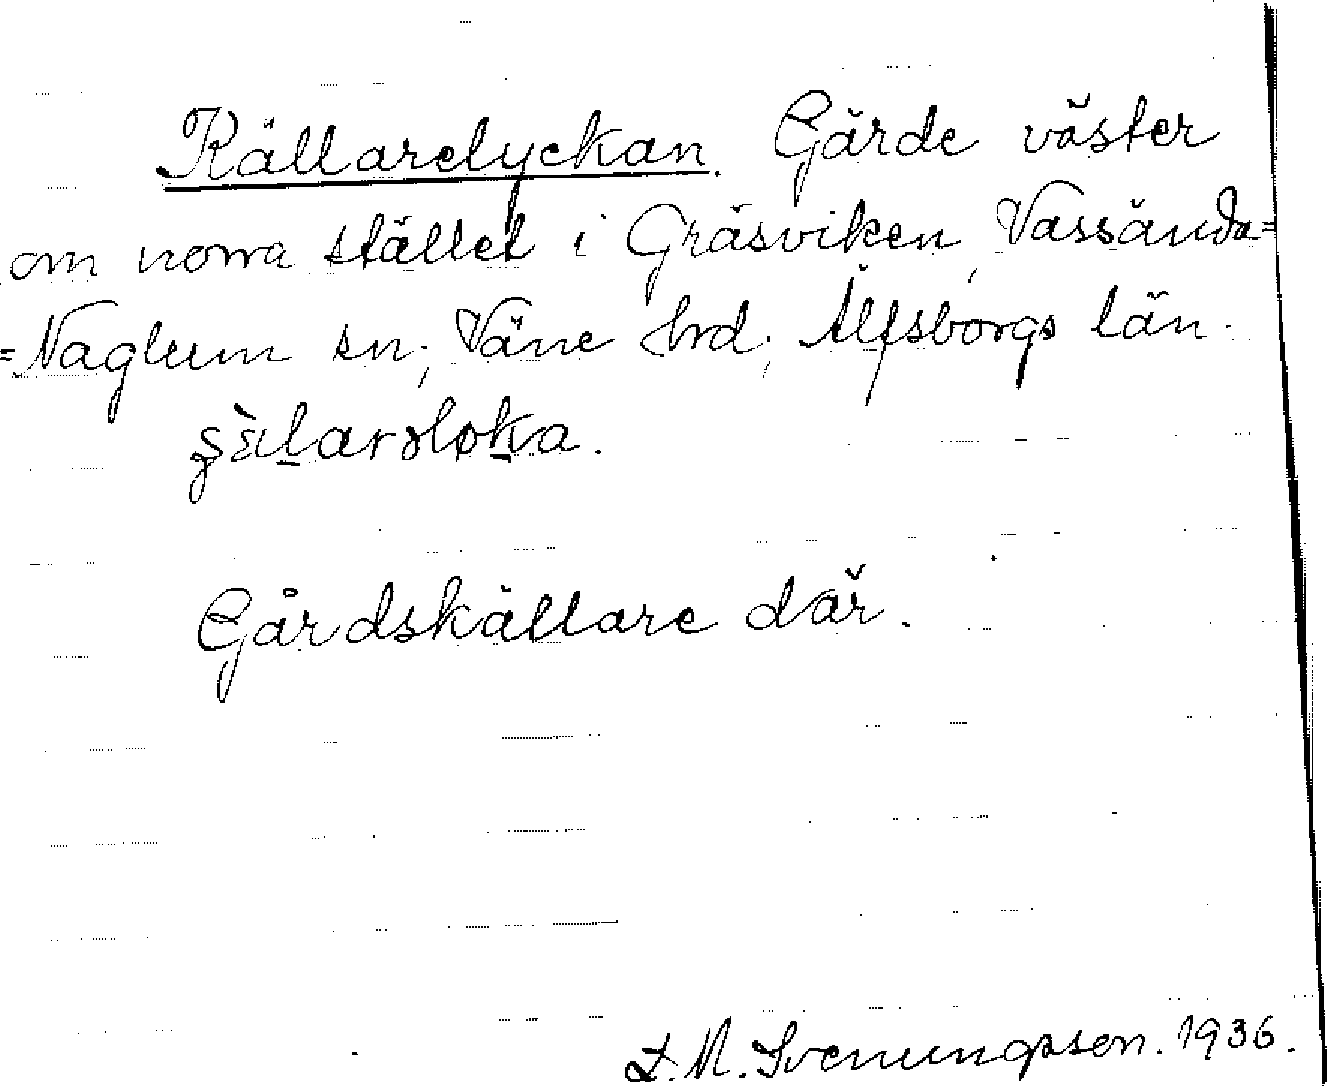 Källarelyckan. Gärde väster
om norra stället i Gräsviken, Vassända=
=Naglum sn; Väne hrd; Älfsborgs län.
Gårdskällare där.
L. M. Svenungsson. 1936.